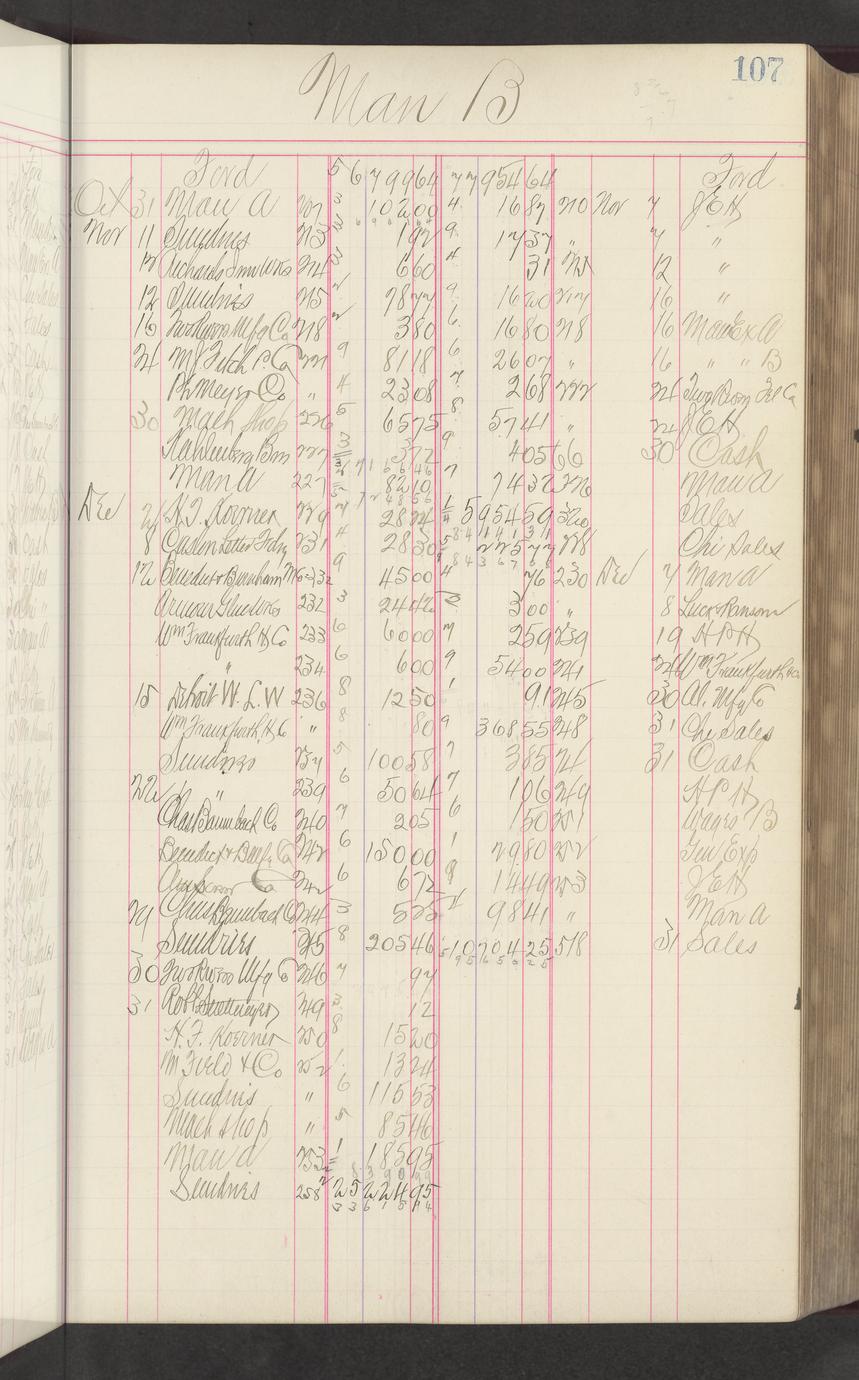 107
Man B
Ford 5 6 7 9 9 64 7 7 954 64 Ford
Oct 31 Man A 207 3 10200 4 1687 210 Nov 7 J.E.H.
Nov 11 Sundries 213 192 9 1737 " 7 "
12 Richards Iron Wks 214 660 4 31 215 12 "
12 Sundries 215 7877 9 1620 217 16 "
16 Two Rivers Mfg Co 218 380 6 1680 218 16 Man Ex A
24 M J Fitch P. Co 221 9 8118 6 2607 " 16 " " B
Ph Meyer Co " 4 2308 7 268 222 24 Two Rivers Mfg Co
30 Mach Shop 226 5 6575 8 5741 " 24 J.E.H.
Kahlenberg Bros 227 3 372 9 40566 30 Cash
Man A 227 8210 7 7437 226 Man A
Dec 2 H. F. Koerner 229 7 2824 5954 59 320 Sales
8 231 4 2830 225 77 228 Chi Sales
12 Benedict & Burnham M 232 9 4500 4 76 230 Dec 7 Man A
Armour Glue Wks 232 3 2442 300 " 8 Luck Ransom
Wm Frankfurth H Co 233 6 6000 7 259 239 19 H P H
" 234 6 600 9 5400 241 24 Wm Frankfurth H Co
15 Detroit W. L. W 236 8 1250 1 91 245 30 Al. Mfg Co
Wm Frankfurth H Co " 8 80 9 368 55 248 31 Chi Sales
Sundries 237 5 10058 7 385 24 31 Cash
22 " 239 6 5064 7 106 249 H P H
Chas Baumbach Co 240 7 205 6 150 251 Wages B
Benedict & Burnh Co 242 6 15000 1 2980 252 Gen Exp
Co 242 6 672 8 1449 253 J.E.H.
24 Chas Baumbach Co 244 3 525 9841 " Man A
Sundries 245 8 20546 10704 25 518 31 Sales
30 Two Rivers Mfg Co 246 7 97
31 Robt 249 3 12
H. F. Koerner 250 8 1520
M Field & Co 252 1 1324
Sundries " 6 11553
Mach Shop " 5 8546
Man A 253 1 18595
Sundries 258 2522495
3 3 6 1 5 9 4